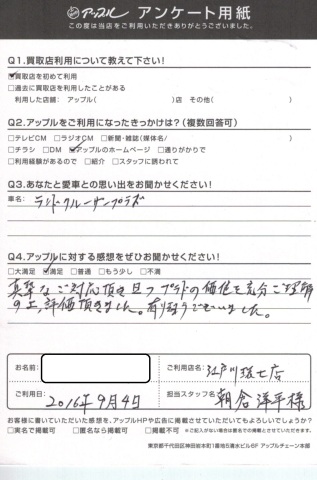 アップル アンケート用紙
この度は当店をご利用いただきありがとうございました。
Q1.買取店利用について教えて下さい!
☑買取店を初めて利用
□過去に買取店を利用したことがある
利用した店舗: アップル( )店 その他( )
Q2.アップルをご利用になったきっかけは?(複数回答可)
□テレビCM □ラジオCM □新聞・雑誌(媒体名/ )
□チラシ □DM ☑アップルのホームページ □通りがかりで
□利用経験があるので □紹介 □スタッフに誘われて
Q3.あなたと愛車との思い出をお聞かせください!
車名: ランドクルーザープラド
Q4.アップルに対する感想をぜひお聞かせください!
□大満足 ☑満足 □普通 □もう少し □不満
真摯なご対応頂き且つプラドの価値を充分ご理解
の上、評価頂きました。有り難うございました。
お名前:
ご利用店名: 江戸川瑞江店
ご利用日: 2016年9月4日
担当スタッフ名: 朝倉洋平様
お客様に書いていただいた感想を、アップルHPや広告に掲載させていただいてもよろしいでしょうか?
□実名で掲載可 □匿名なら掲載可 □掲載不可 ※ご記入がない場合は匿名での掲載とさせていただきます。
東京都千代田区神田岩本町1番地5清水ビル6F アップルチェーン本部